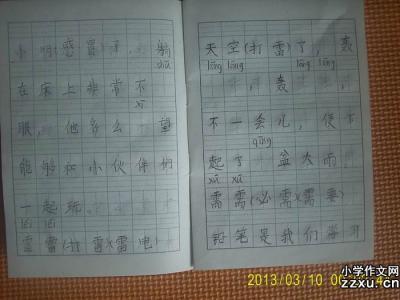 小明感冒了，躺
在床上非常不
眼，他多么望
能够和小伙伴们
一起玩。
雷雷(打雷)(雷电)
天空(打雷)了，轰
lōng lōng lōng lōng
，轰，
不一会儿，便下
qīng
起了盆大雨！
xū xū
需需(必需)(需要)
铅笔是我们每
2013/03/10
小学作文网
zzxu.cn